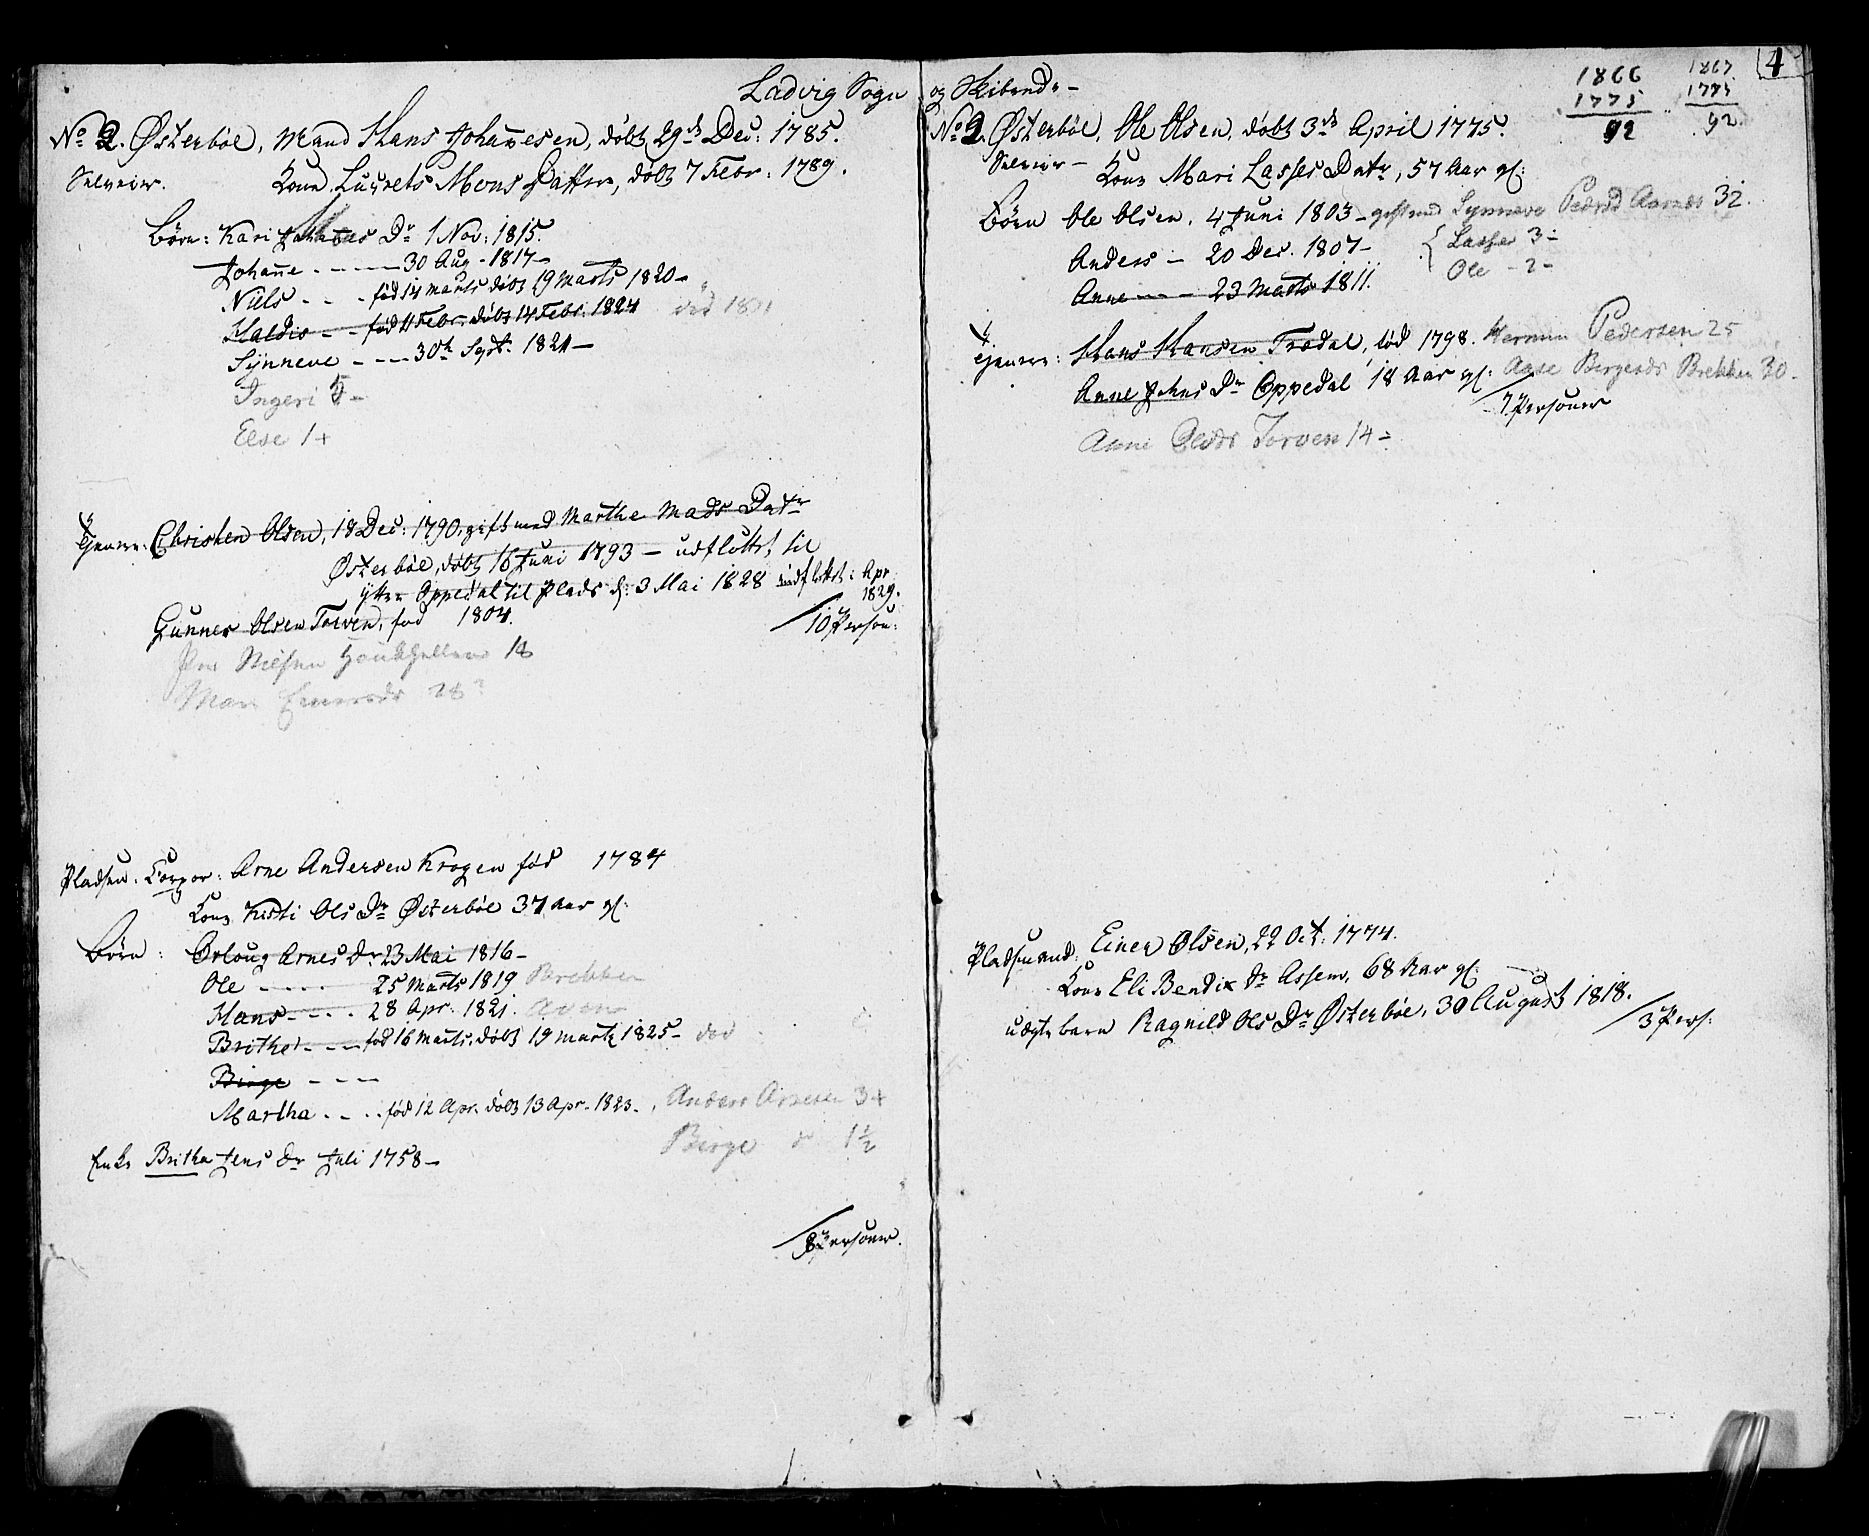 Ladvig Sogn og Skibred.
4
1866
1775
92
1867
1775
92
No 2. Østerbøe, Mand Hans Johannesen, døbt 29de Dec: 1785.
Selveier. Kone Mons Datter, døbt 7 Febr: 1789.
Børn: Kari Dr 1 Nov: 1815.
Johanne - - - - 30 Aug - 1817 -
Niels - - - født 14 Marts døbt 19 Marts 1820 -
Haldis - - - født 11 Febr. døbt 14 Febr. 1824 død
Synneve - - - 30te Sept. 1821 -
Ingeri 5 -
Else 1 +
Tjenere: Christen Olsen, 18 Dec: 1790, gift med Marthe Mads Datr
Østerbøe, døbt 16 Juni 1793 - udfløttet til
ytre Oppedal til Plads d: 3 Mai 1828 indfløttet i Apr
1829.
Gunner Olsen Torven, fød 1804.
10 Person:
Per Nielsen 18
Mari 28
Pladsen: Corpor: Arne Andersen Krogen fød 1784
Kone Kristi Ols Dr Østerbøe 37 Aar gl:
Børn: Ørloug Arnes Dr 23 Mai 1816 -
Ole - - - - 25 Marts 1819 Brekken
Hans - - - - 28 Apr. 1821.
Brithe - - - fød 16 Marts, døbt 19 Marts 1825 - død
Birge - - -
Martha - - - fød 12 Apr. døbt 13 Apr. 1823. Anders Arnesen 3 +
Birge do 1½
Enke Britha Jens Dr Juli 1758 -
8 Personer.
No 2. Østerbøe, Ole Olsen, døbt 3de April 1775.
Selveier - Kone Mari Lasses Datr, 57 Aar gl:
Børn Ole Olsen, 4 Juni 1803 - gift med Synneve Pedersd 32
Anders - 20 Dec. 1807 -
Lasse 3 -
Ole - 2 -
Anne - - - 23 Marts 1811.
Tjenere: Hans Hansen Trædal, fød 1798. Herman Pedersen 25
Anne Johns Dr Oppedal 18 Aar gl: Aase Birgersdr Brekken 30 -
7 Personer
Anne Pedsdr Torven 14 -
Pladsmand: Einer Olsen, 22 Oct: 1774.
Kone Eli Bendix Dr Assem, 68 Aar gl:
uægte barn Ragnild Ols Dr Østerbøe, 30 August 1818.
3 Pers: